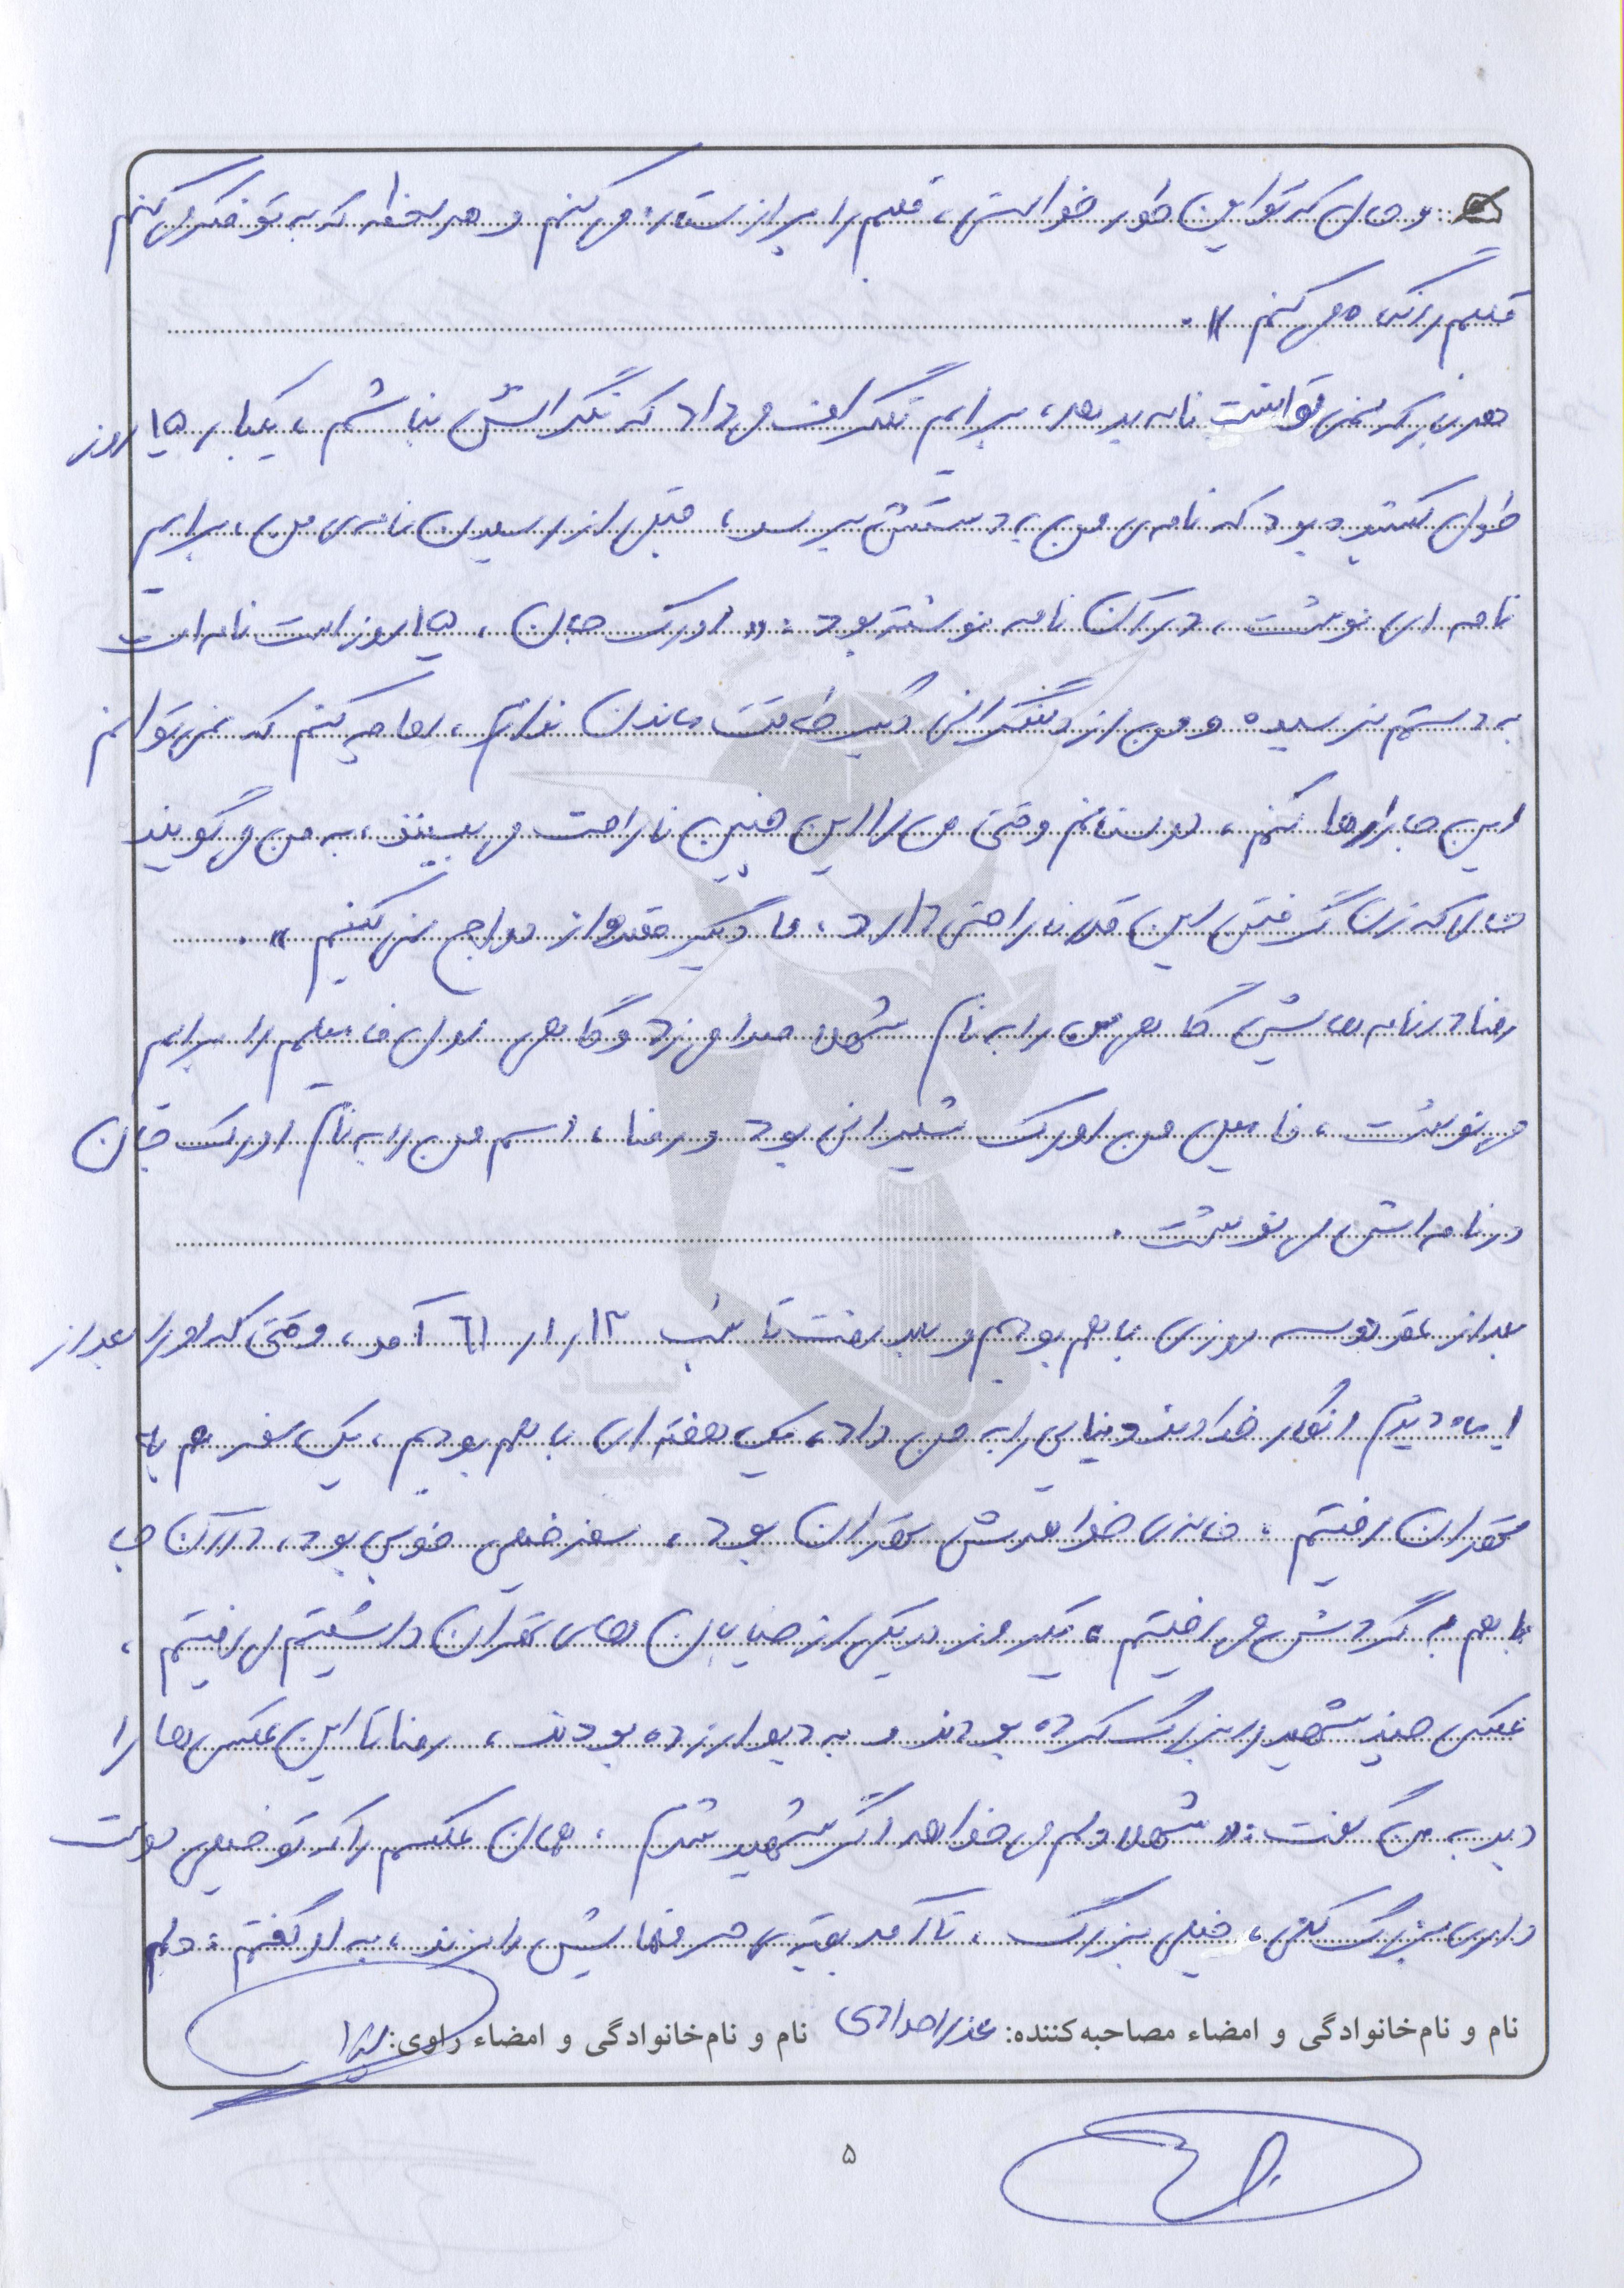 و حال که تو این طور خواستی، قلبم را پر از ستاره می‌کنم و هر لحظه که به تو فکر می‌کنم
قلبم رنگ می‌کنم».
هر زمان که نمی‌توانست نامه بدهد، برایم تلگراف می‌داد که نگرانش نباشم، یکبار ۱۵ روز
طول کشیده بود که نامه‌ی من به دستش برسد، قبل از رسیدن نامه‌ی من، برایم
نامه ای نوشت، در آن نامه نوشته بود: «اورک جان، ۱۵ روز است نامه‌ات
به دستم نرسیده و من از نگرانی دیگر طاقت ماندن ندارم، اما چه کنم که نمی‌توانم
این جا را رها کنم، دوستانم وقتی من را این چنین ناراحت می‌بینند، به من می‌گویند
حالا که زن گرفتن این قدر ناراحتی دارد، ما دیگر ازدواج نمی‌کنیم».
رضا در نامه‌هایش گاهی من را به نام شهلا صدا می‌زد و گاهی اول فامیلم را برایم
می‌نوشت، فامیلی من اورک شیرانی بود و رضا، اسم من را به نام اورک جان
در نامه‌اش می‌نوشت.
بعد از عقد دو سه روزی با هم بودیم و بعد رفت تا شب ۱۳/۱/۶۱ آمد، وقتی که او را بعد از
۱ ماه دیدم انگار خداوند دنیایی را به من داد، یک هفته‌ای با هم بودیم، یک سفر هم به
تهران رفتیم، خانه‌ی خواهرش تهران بود، سفر خیلی خوبی بود، در آن جا
با هم به گردش می‌رفتیم، یک روز در یکی از خیابان های تهران داشتیم می‌رفتیم،
عکس چند شهید را بزرگ کرده بودند و به دیوار زده بودند، رضا تا این عکس‌ها را
دید به من گفت: «شهلا دلم می‌خواهد اگر شهید شدم، همان عکسم را که تو خیلی دوست
داری بزرگ کنی، خیلی بزرگ، تا آمد بقیه‌ی حرفهایش را بزند، به او گفتم: دلم
نام و نام‌خانوادگی و امضاء مصاحبه‌کننده: عذرا مرادی نام و نام‌خانوادگی و امضاء راوی:
۵